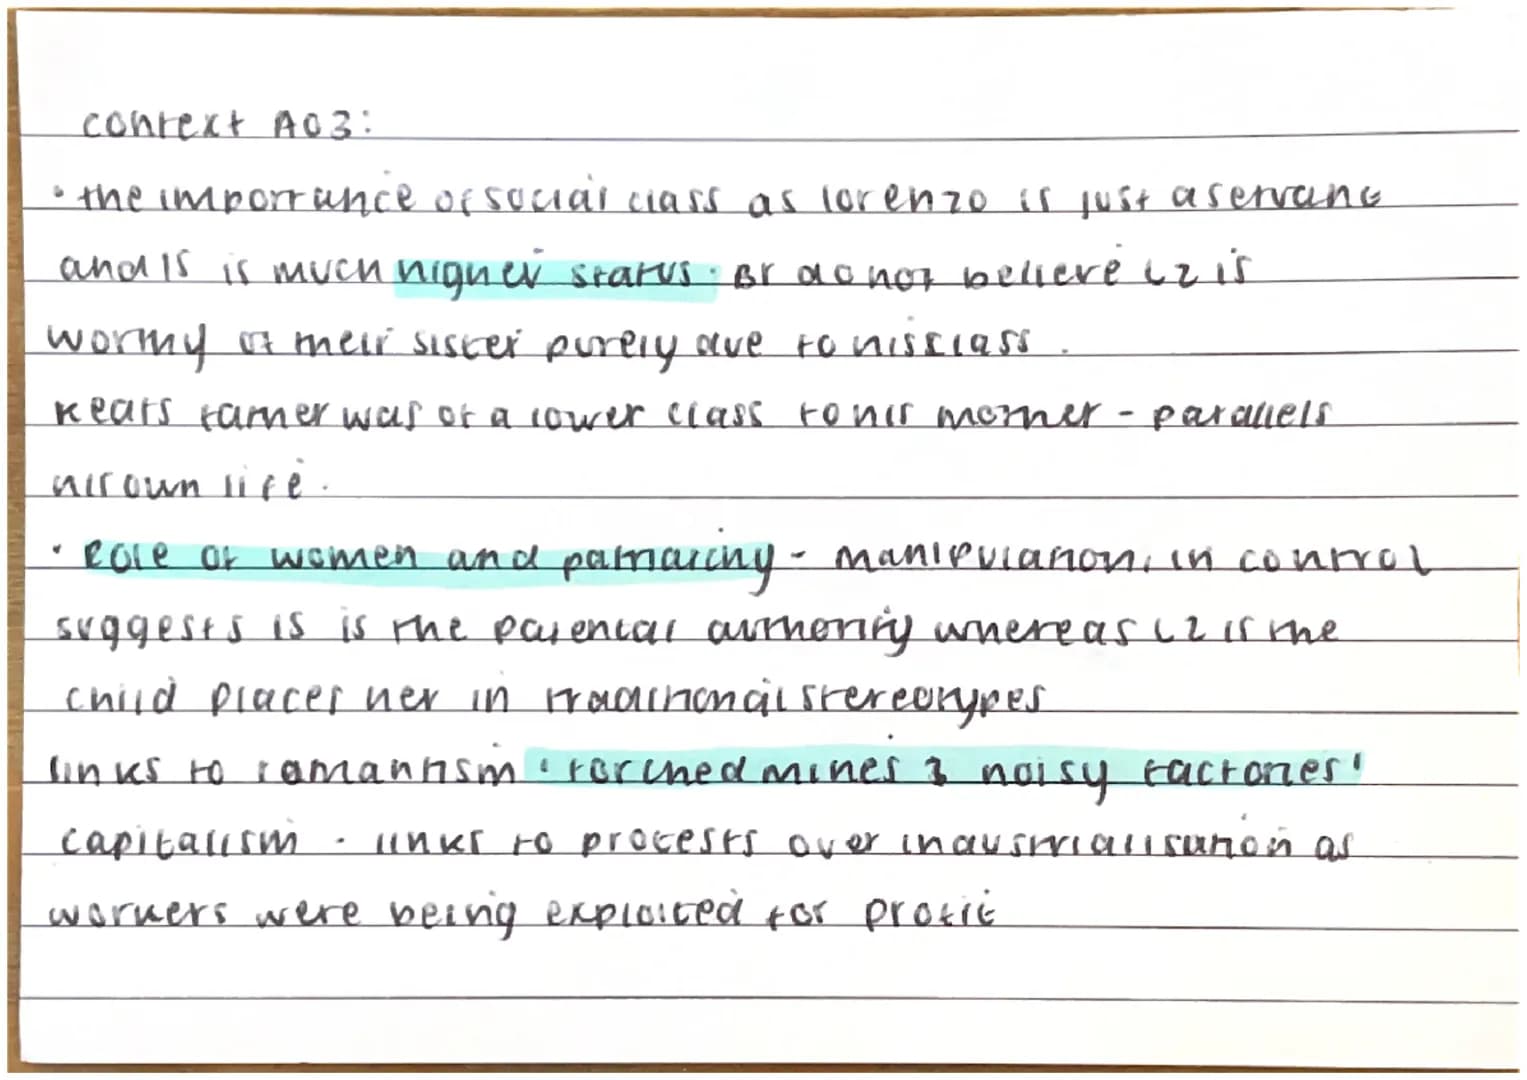 context AO3:
• the importance of social class as lorenzo is just a servant
and IS is much higher status. Br do not believe LZ is
worthy of their sister purely due to his class.
Keats father was of a lower class to his mother - parallels
his own life.
• Role of women and patriarchy - manipulation, in control
suggests IS is the parental authority whereas LZ is the
child places her in traditional stereotypes
links to romantism 'torched mines & noisy factories'
capitalism. links to protests over industrialisation as
workers were being exploited for profit